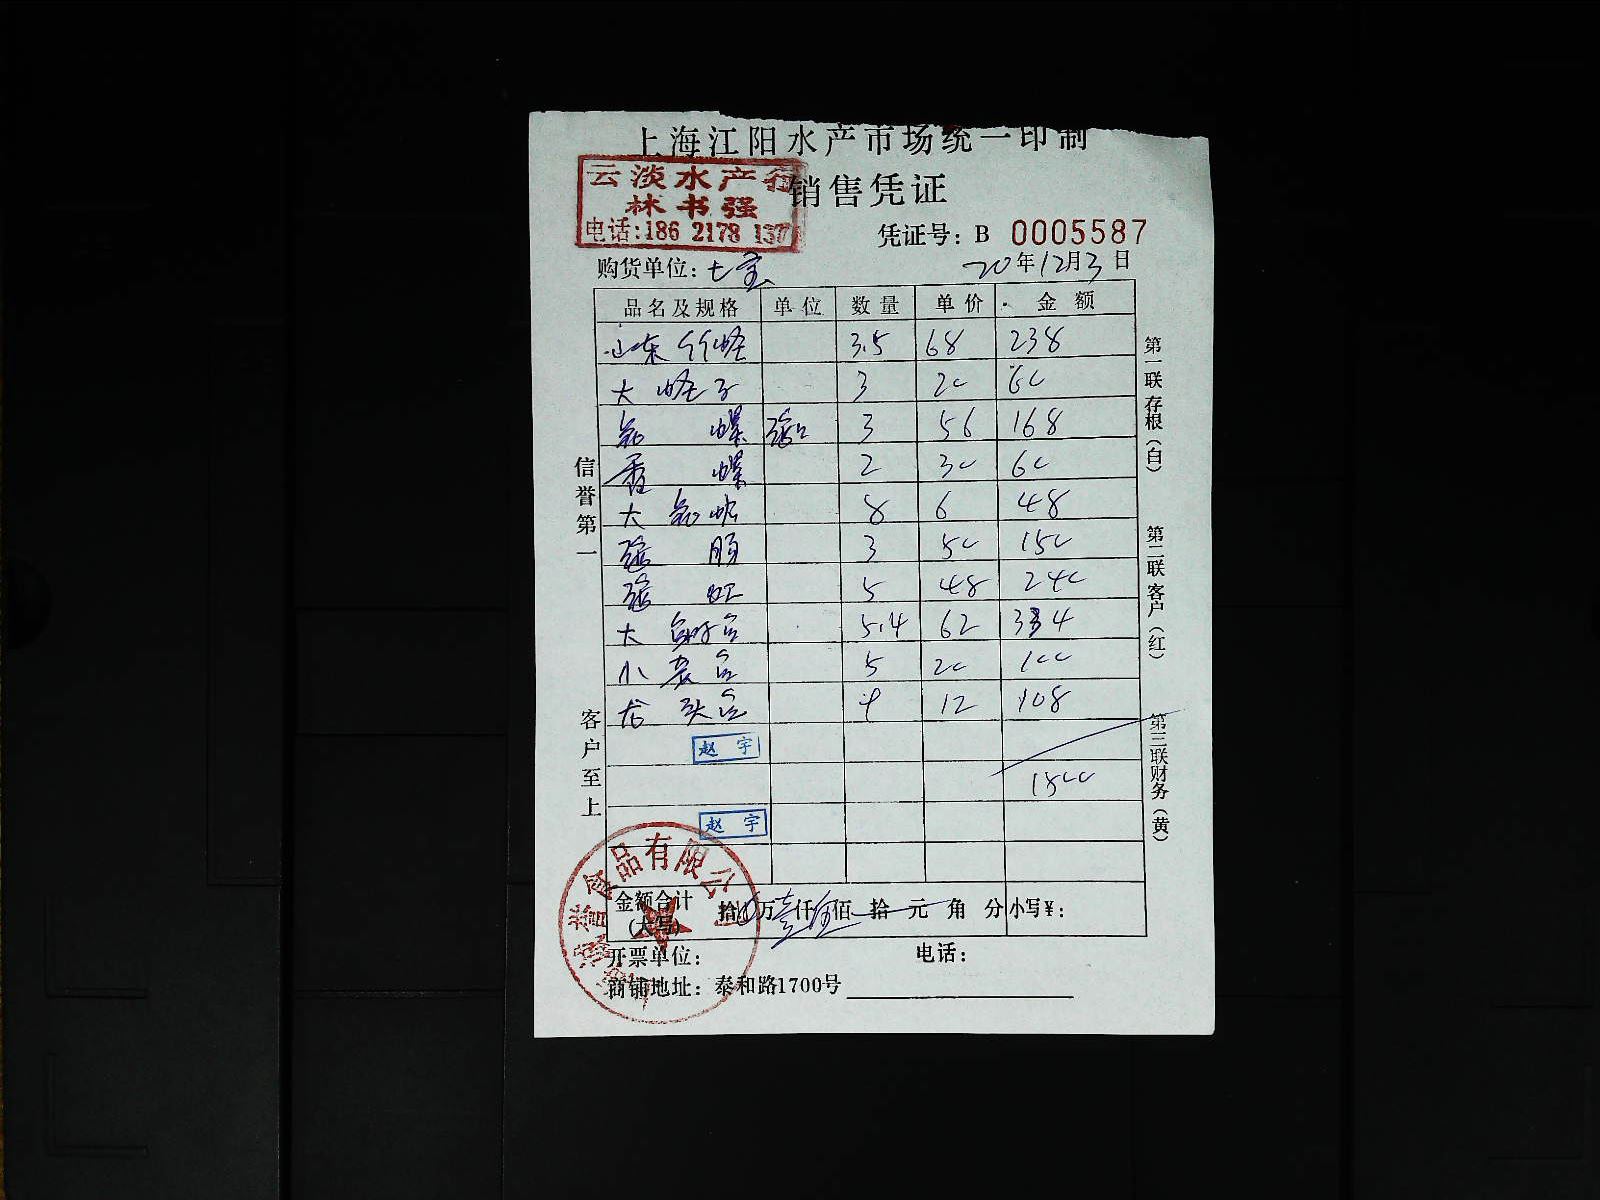 上海江阳水产市场统一印制
云淡水产行
林书强
电话:186 2178 137
销售凭证
凭证号: B 0005587
购货单位: 七宝
20年12月3日
品名及规格 单位 数量 单价 金额
山东竹蛏 3.5 68 238
大蛏子 3 20 60
螺 3 56 168
香螺 2 30 60
大 8 6 48
3 50 150
5 48 240
大 5.4 62 334
小 5 20 100
龙头 9 12 108
赵宇
1500
赵宇
金额合计(大写) 拾 万 壹 仟 伍 佰 拾 元 角 分 小写¥:
开票单位: 电话:
商铺地址: 泰和路1700号
信誉第一
客户至上
第一联存根(白)
第二联客户(红)
第三联财务(黄)
食品有限公司